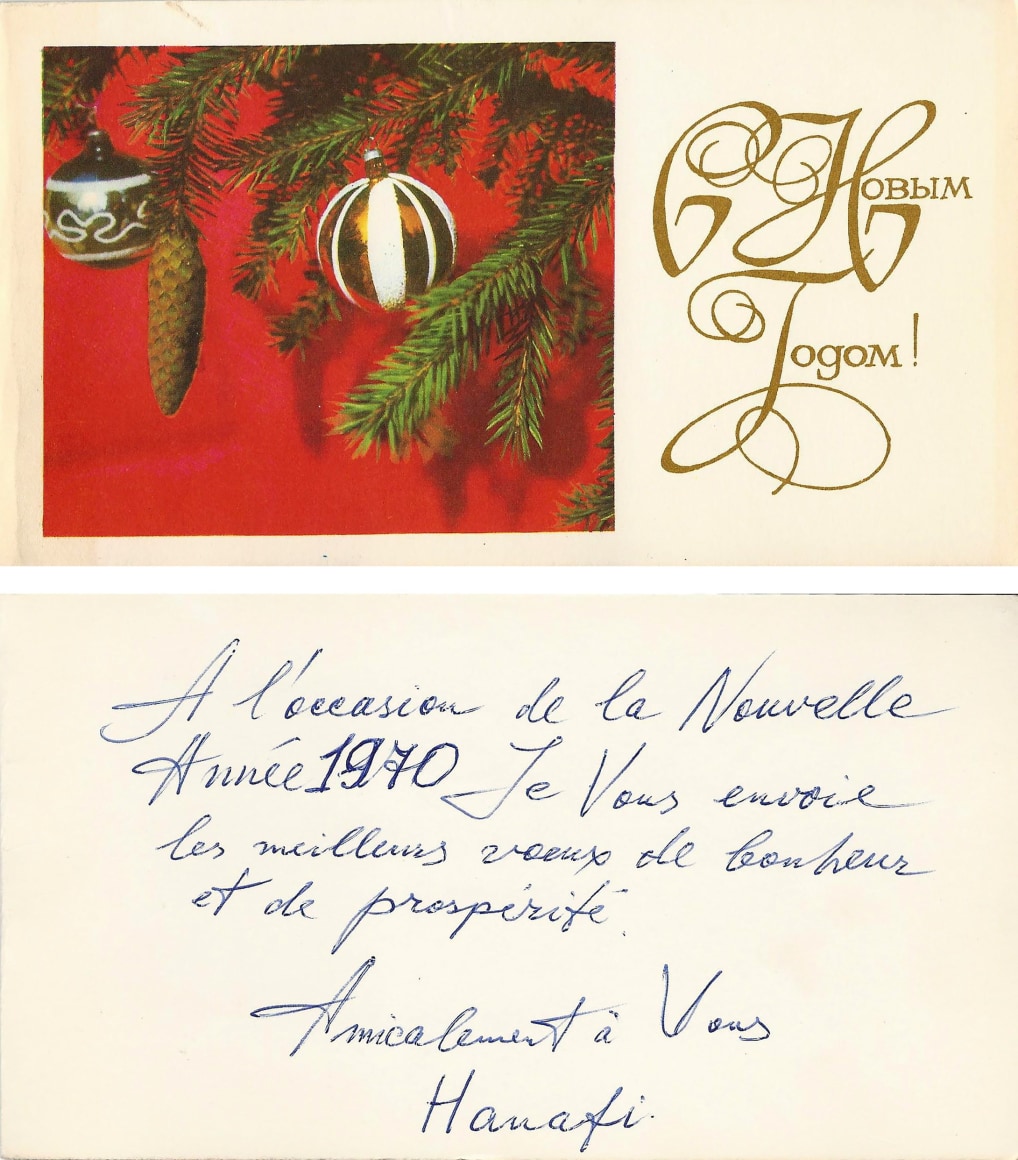 С Новым
Годом!
A l'occasion de la Nouvelle
Année 1970 Je Vous envoie
les meilleurs voeux de bonheur
et de prospérité.
Amicalement à Vous
Hanafi.